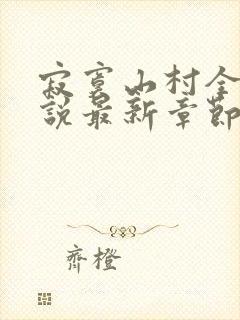 寂寞山村全
說最新章節
齊橙